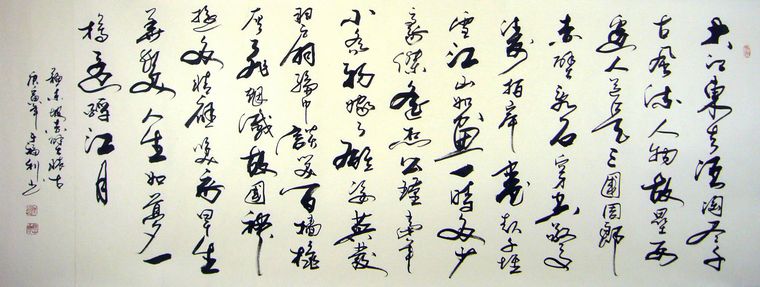 大江東去浪淘盡千
古風流人物故壘西
邊人道是三國周郎
赤壁亂石穿空驚
濤拍岸卷起千堆
雪江山如畫一時多少
豪傑遙想公瑾當年
小喬初嫁了雄姿英發
羽扇綸巾談笑間檣櫓
灰飛煙滅故國神
遊多情應笑我早生
華髮人生如夢一
樽還酹江月
蘇東坡赤壁懷古
庚寅年 福利書